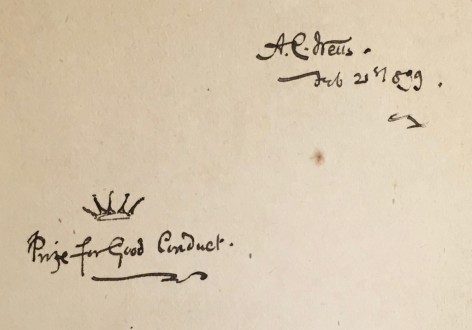 A. C.
Feb 21st 1899.
Prize for Good Conduct.